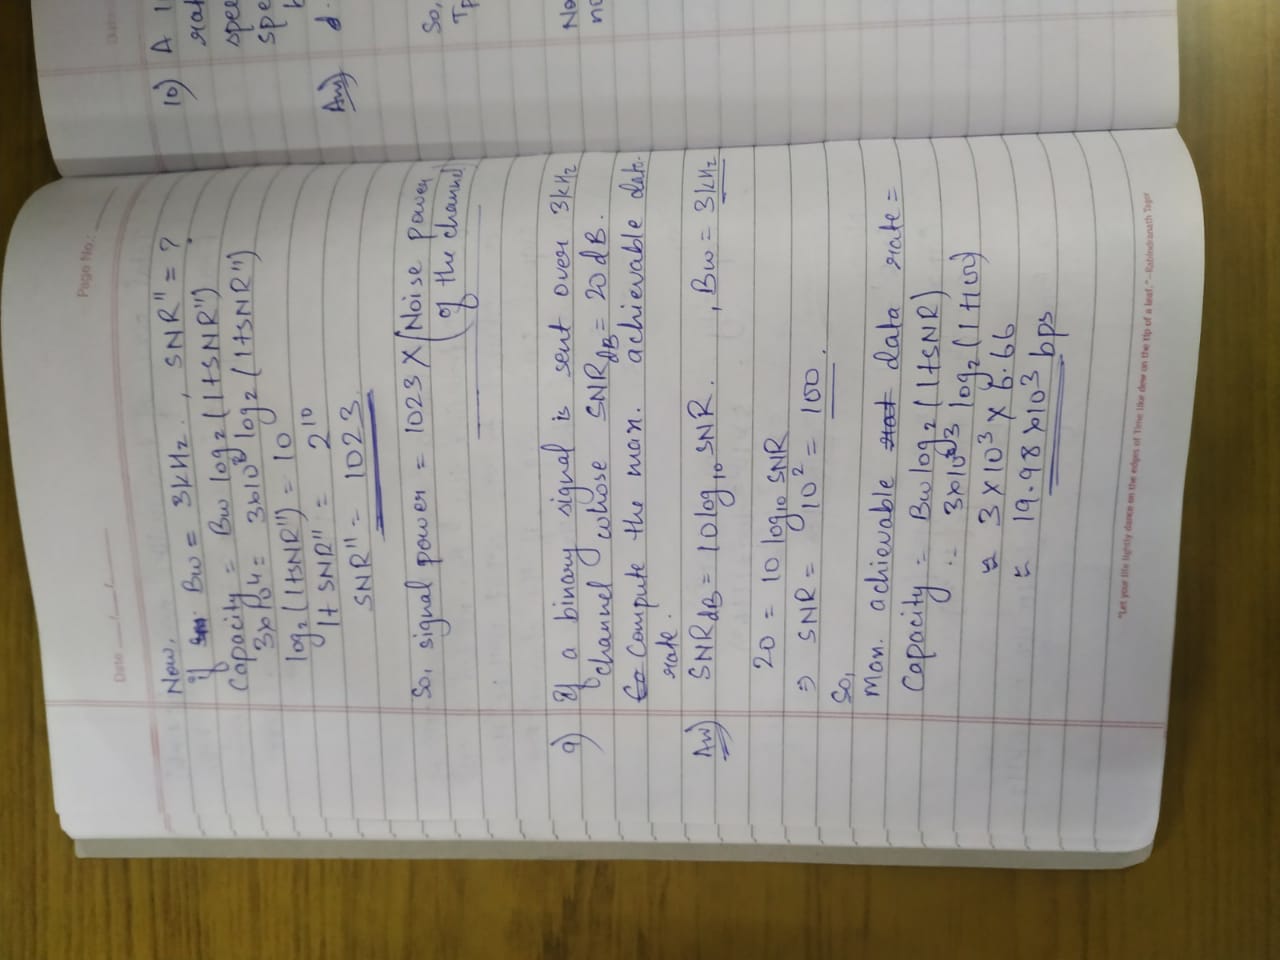 Page No.:
Date __/__/__
Now,
if Bw = 3kHz. , SNR" = ?
Capacity = Bw log2 (1+SNR")
3x10^4 = 3x10^3 log2 (1+SNR")
log2 (1+SNR") = 10
1+ SNR" = 2^10
SNR" = 1023.
So, signal power = 1023 X (Noise power
of the channel)
9) If a binary signal is sent over 3kHz
channel whose SNRdB = 20 dB.
Compute the max. achievable data
rate.
Ans) SNRdB = 10 log10 SNR. , Bw = 3kHz
20 = 10 log10 SNR
⇒ SNR = 10^2 = 100.
So,
Max. achievable data rate =
Capacity = Bw log2 (1+SNR)
= 3x10^3 log2 (1+100)
≈ 3 X 10^3 X 6.66
≈ 19.98 x10^3 bps
"Let your life lightly dance on the edges of Time like dew on the tip of a leaf." -Rabindranath Tagor
10) A
Ans) d.
So,